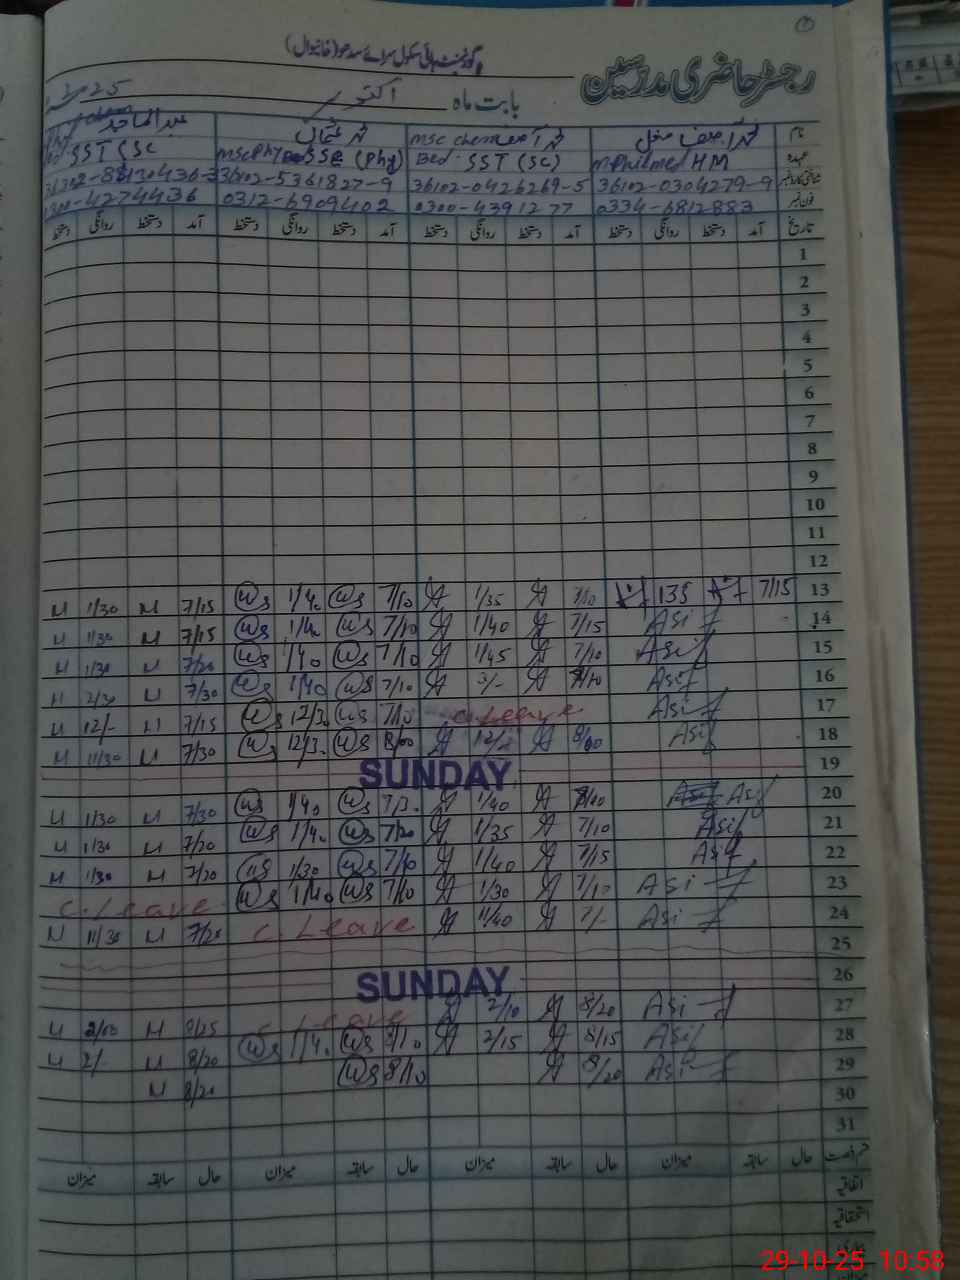 گورنمنٹ ہائی سکول سرائے سدھو (خانیوال)
رجسٹر حاضری مدرسین
بابت ماہ اکتوبر 25
نام محمد آصف مغل محمد آصف Msc chem محمد عثمان عبدالماجد
عہدہ Mphil med HM Bed SST (SC) Msc Phy SSE (Phy) SST (SC
36102-0304279-9 36102-0426269-5 36102-5361827-9
فون نمبر 0334-6812883 0300-4391277 0312-6909402 0300-4274436
تاریخ آمد دستخط روانگی دستخط آمد دستخط روانگی دستخط آمد دستخط روانگی دستخط آمد دستخط روانگی دستخط
1
2
3
4
5
6
7
8
9
10
11
12
13 7/15 135 7/10 1/35 7/10 ws 1/40 ws 7/15 M 1/30 M
14 Asif 7/15 1/40 7/10 ws 1/40 ws 7/15 M 1/30 M
15 Asif 7/10 1/45 7/10 ws 1/40 ws 7/20 M 1/30 M
16 Asif 7/10 3/- 7/10 ws 1/40 ws 7/30 M 2/30 M
17 Asif c Leave 7/10 ws 12/30 ws 7/15 M 12/- M
18 Asif 8/00 8/00 ws 12/30 ws 7/30 M 11/30 M
19 SUNDAY
20 Asif 1/40 7/30 ws 1/40 ws 7/30 M 1/30 M
21 Asif 7/10 1/35 7/20 ws 1/40 ws 7/20 M 1/30 M
22 Asif 7/15 1/40 7/10 ws 1/30 ws 7/20 M 1/30 M
23 Asif 7/10 1/30 7/10 ws 1/40 ws C. Leave
24 Asif 7/- 11/40 c Leave 7/20 M 11/30 M
25
26 SUNDAY
27 Asif 8/20 2/10 c Leave 8/25 M 2/00 M
28 Asif 8/15 2/15 8/10 ws 1/40 ws 8/20 M 2/- M
29 Asif 8/20 8/10 ws 8/20 M
30
31
حال سابقہ میزان حال سابقہ میزان حال سابقہ میزان حال سابقہ میزان
اتفاقیہ
استحقاقیہ
29-10-25 10:58